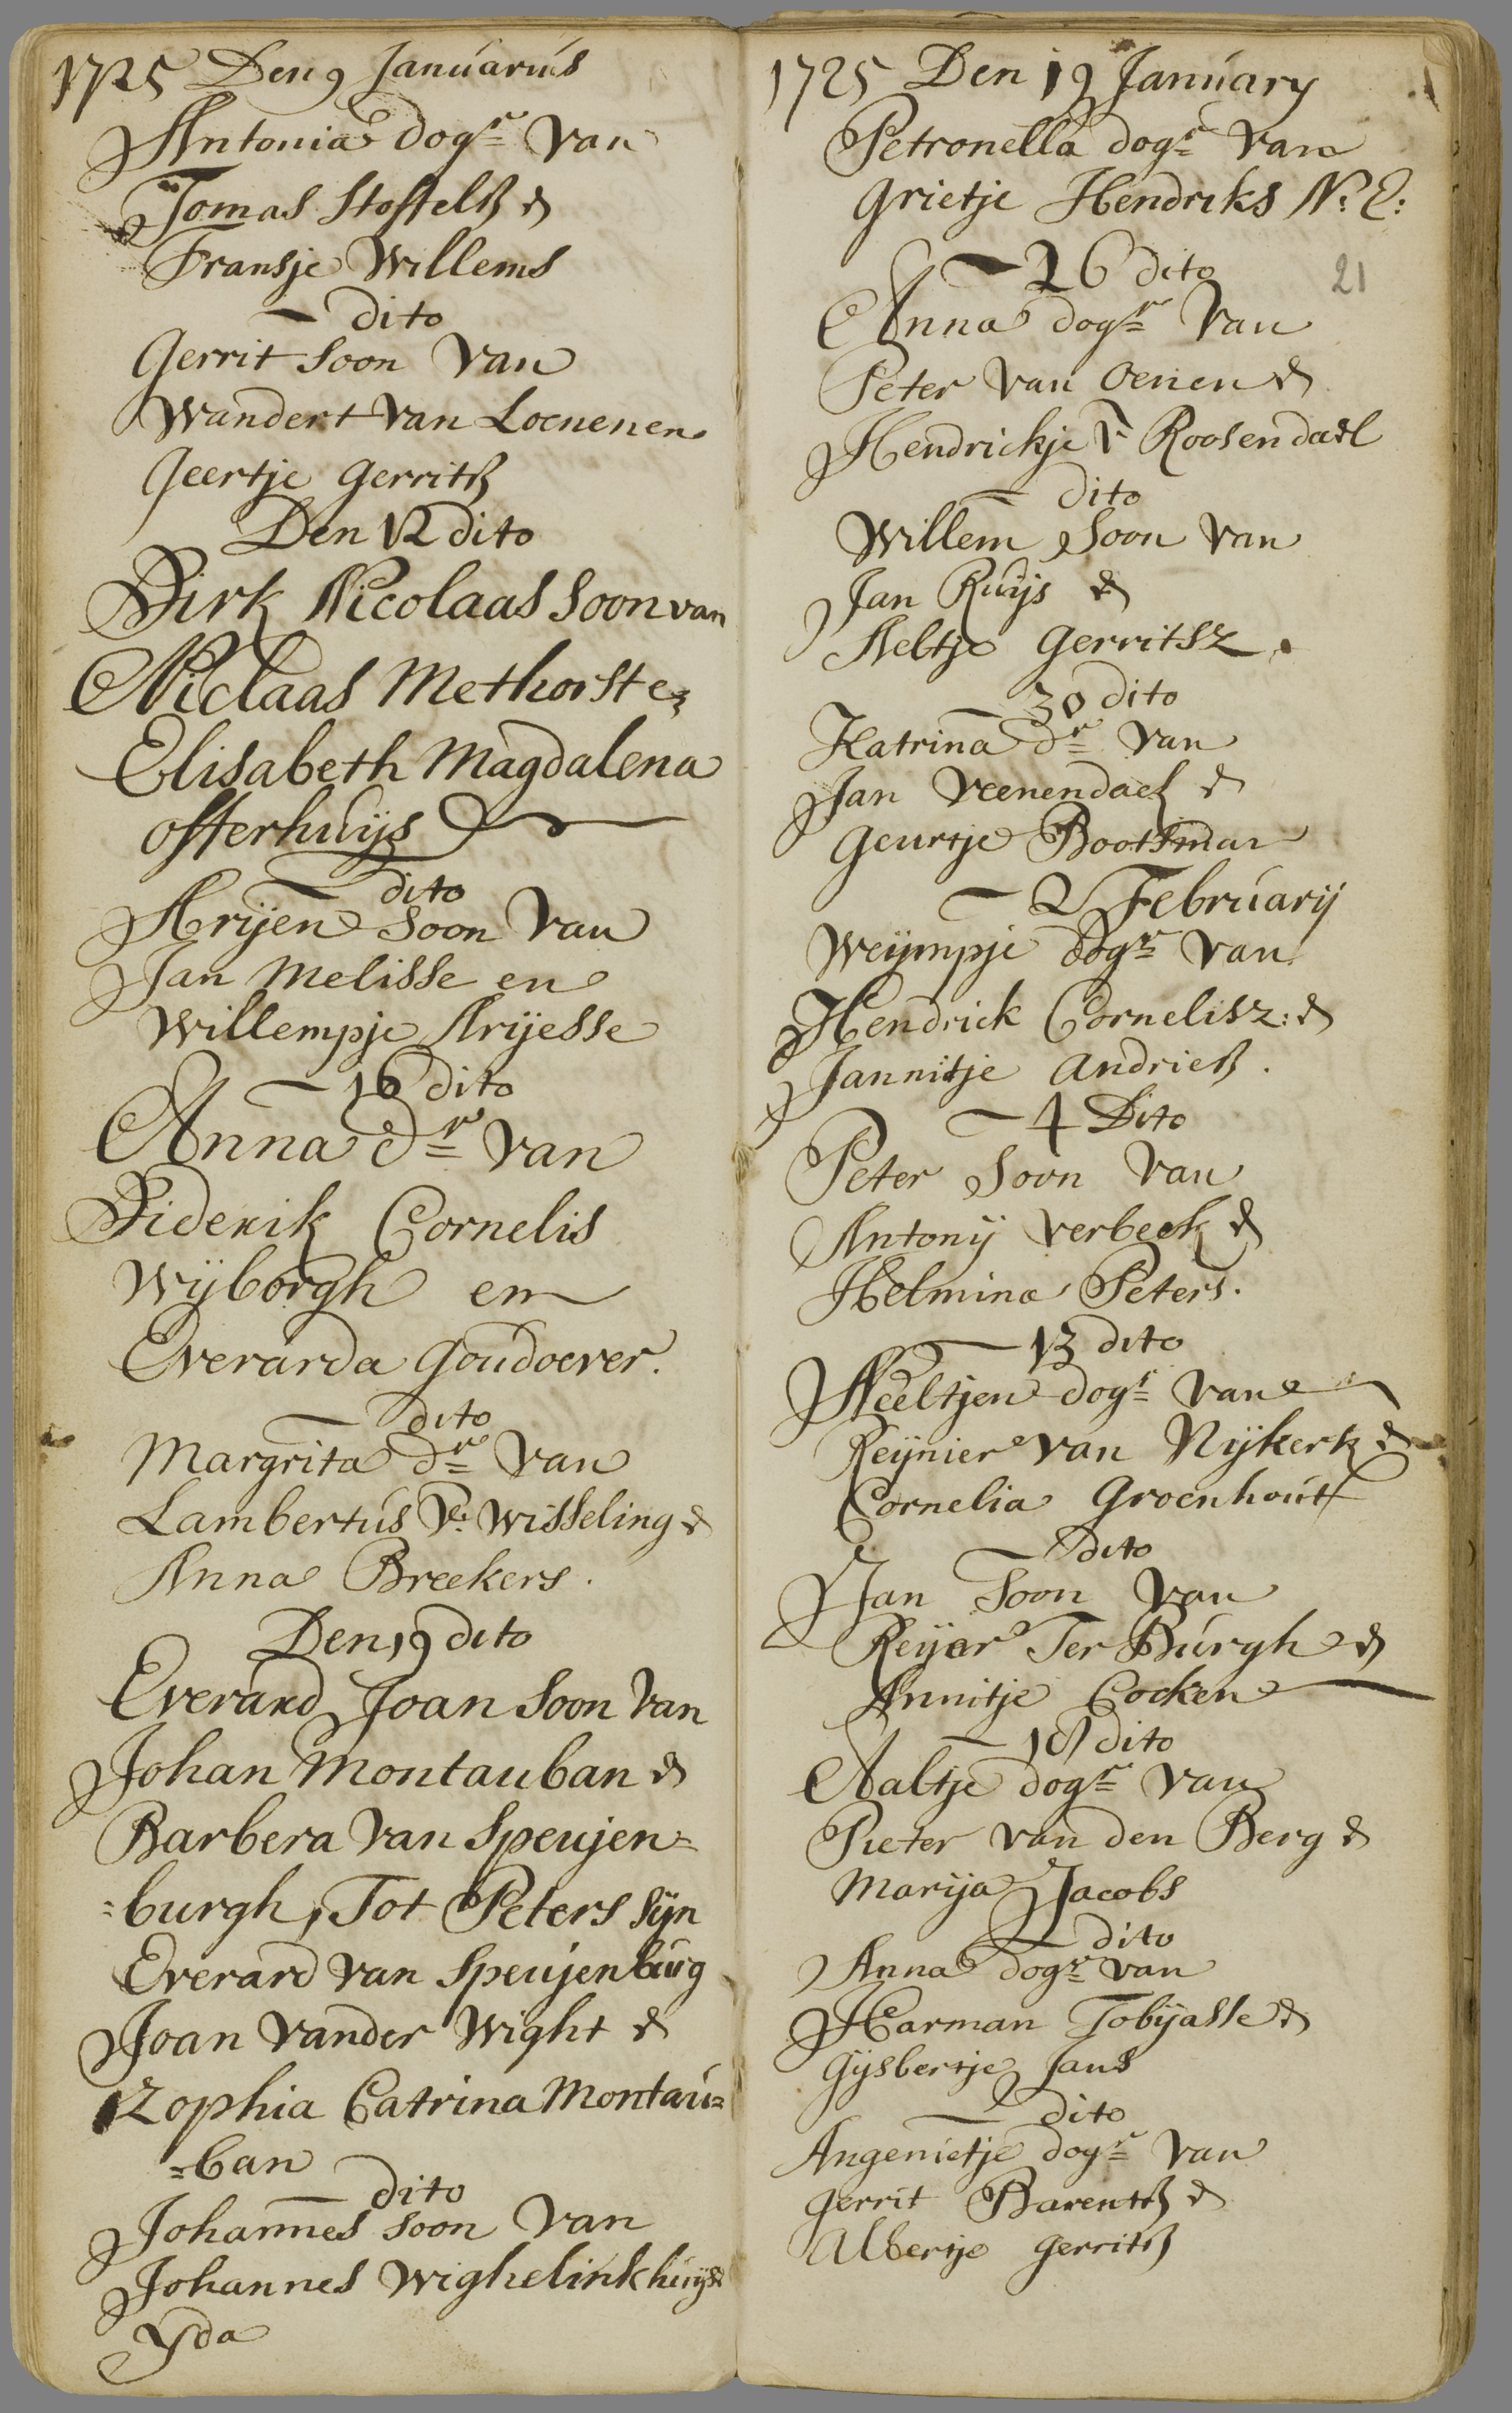 1725 Den 9 Januarius
Antonia dogr van
Tomas Stoffelß &
Fransje Willems
— dito
Gerrit soon van
Wandert van Loenenen
Geertje Gerritß
Den 12 dito
Dirk Nicolaas soon van
Niclaas Methorst e
Elisabeth Magdalena
Offerhuijs
— dito
Arijen soon van
Jan Melisse en
Willempje Arijesse
— 16 dito
Anna dr van
Diderik Cornelis
Wijborgh en
Everarda Goudoever.
— dito
Margrita dr van
Lambertus V: Wisseling &
Anna Breekers.
Den 19 dito
Everard Joan soon van
Johan Montauban &
Barbera van Speujen=
=burgh, Tot Peters sijn
Everard van Speujenburg
Joan vander Wight &
Zophia Catrina Montau=
=ban
— dito
Johannes soon van
Johannes Wighelinkhuijs &
Yda
1725 Den 19 January
Petronella dogr van
Grietje Hendriks N: E:
— 26 dito
21
Anna dogr van
Peter van Oenen &
Hendrickje V Roosendael
— dito
Willem Soon van
Jan Ruijs &
Aeltje Gerritsz.
— 30 dito
Katrina dr van
Jan Veenendael &
Geurtje Bootsman
— 2 February
Weijmpje dogr van
Hendrick Cornelisz: &
Jannitje Andrieß.
— 4 Dito
Peter Soon van
Antony Verbeek &
Helmina Peters.
— 13 dito
Neeltjen dogr van
Reijnier van Nijkerk &
Cornelia Groenhout
— dito
Jan Soon van
Reijer Ter Burgh &
Annitje Cocken
— dito
Aaltje dogr van
Pieter van den Berg &
Marija Jacobs
— dito
Anna dogr van
Harman Tobijasse &
Gijsbertje Jans
— dito
Angenietje dogr van
Gerrit Barentß &
Albertje Gerritß